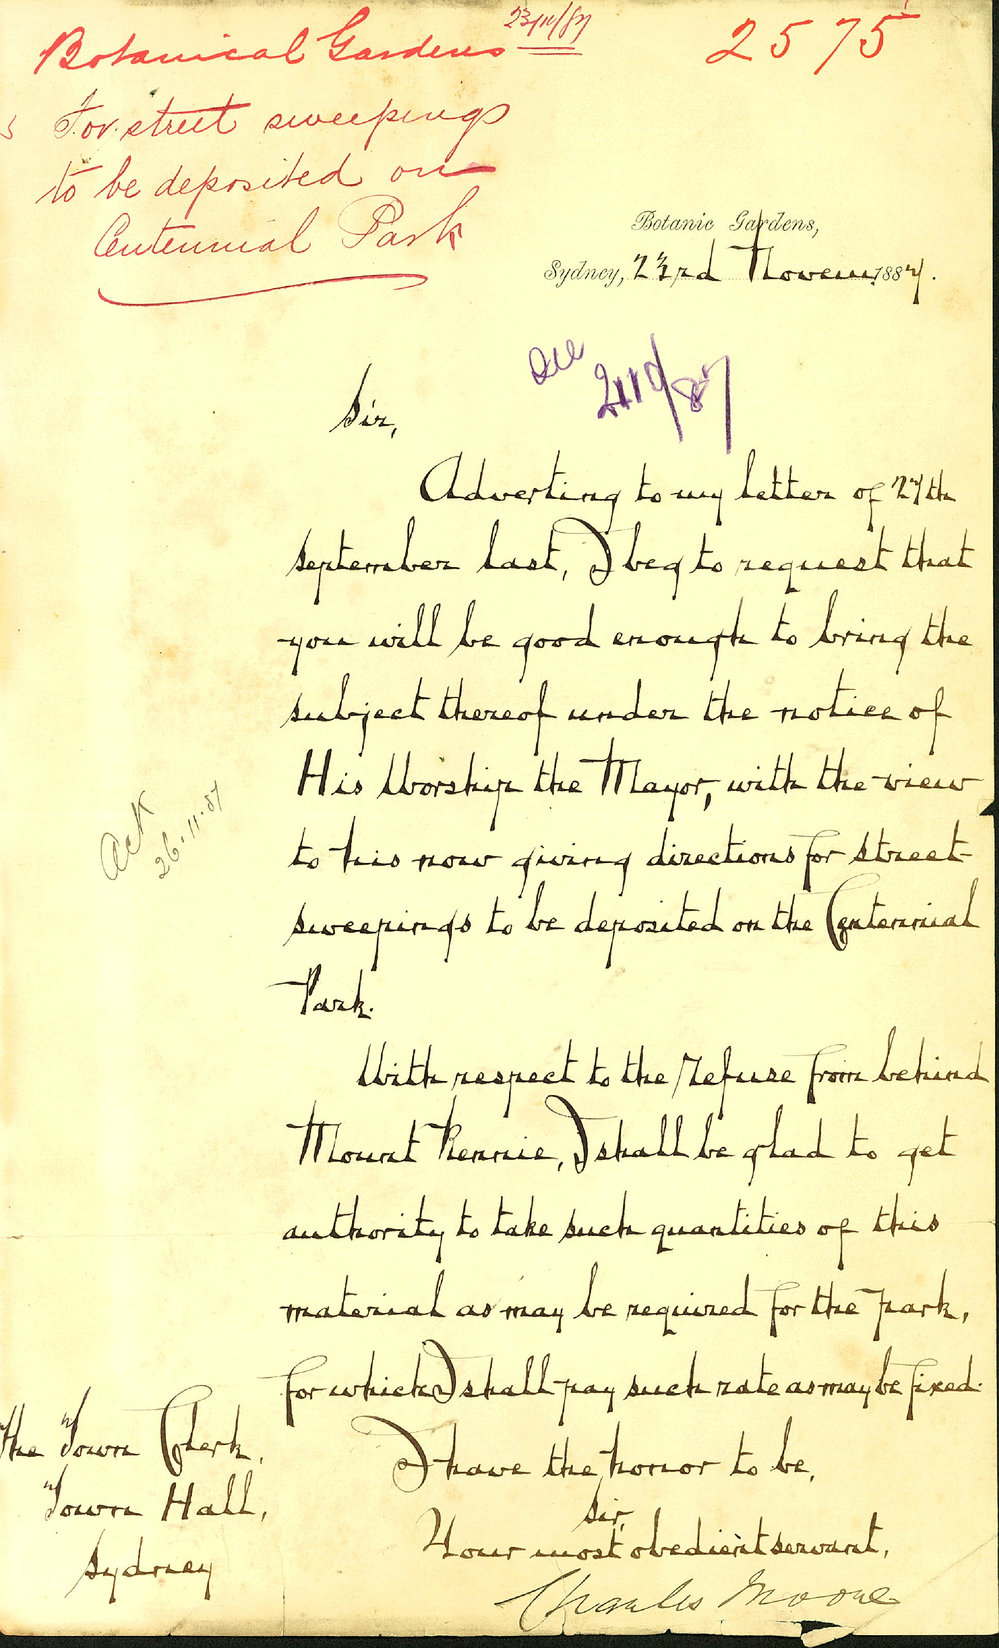 Botanical Gardens 23/11/87
2575
For street sweepings
to be deposited on
Centennial Park
Botanic Gardens,
Sydney, 23rd Novem 1887.
See
2110/87
Sir,
Adverting to my letter of 27th
September last, I beg to request that
you will be good enough to bring the
subject thereof under the notice of
His Worship the Mayor, with the view
to his now giving directions for street-
sweepings to be deposited on the Centennial
Park.
Ack
26.11.87
With respect to the refuse from behind
Mount Rennie, I shall be glad to get
authority to take such quantities of this
material as may be required for the park,
for which I shall pay such rate as may be fixed.
I have the honor to be,
Sir,
Your most obedient servant,
Charles Moore
The Town Clerk,
Town Hall,
Sydney